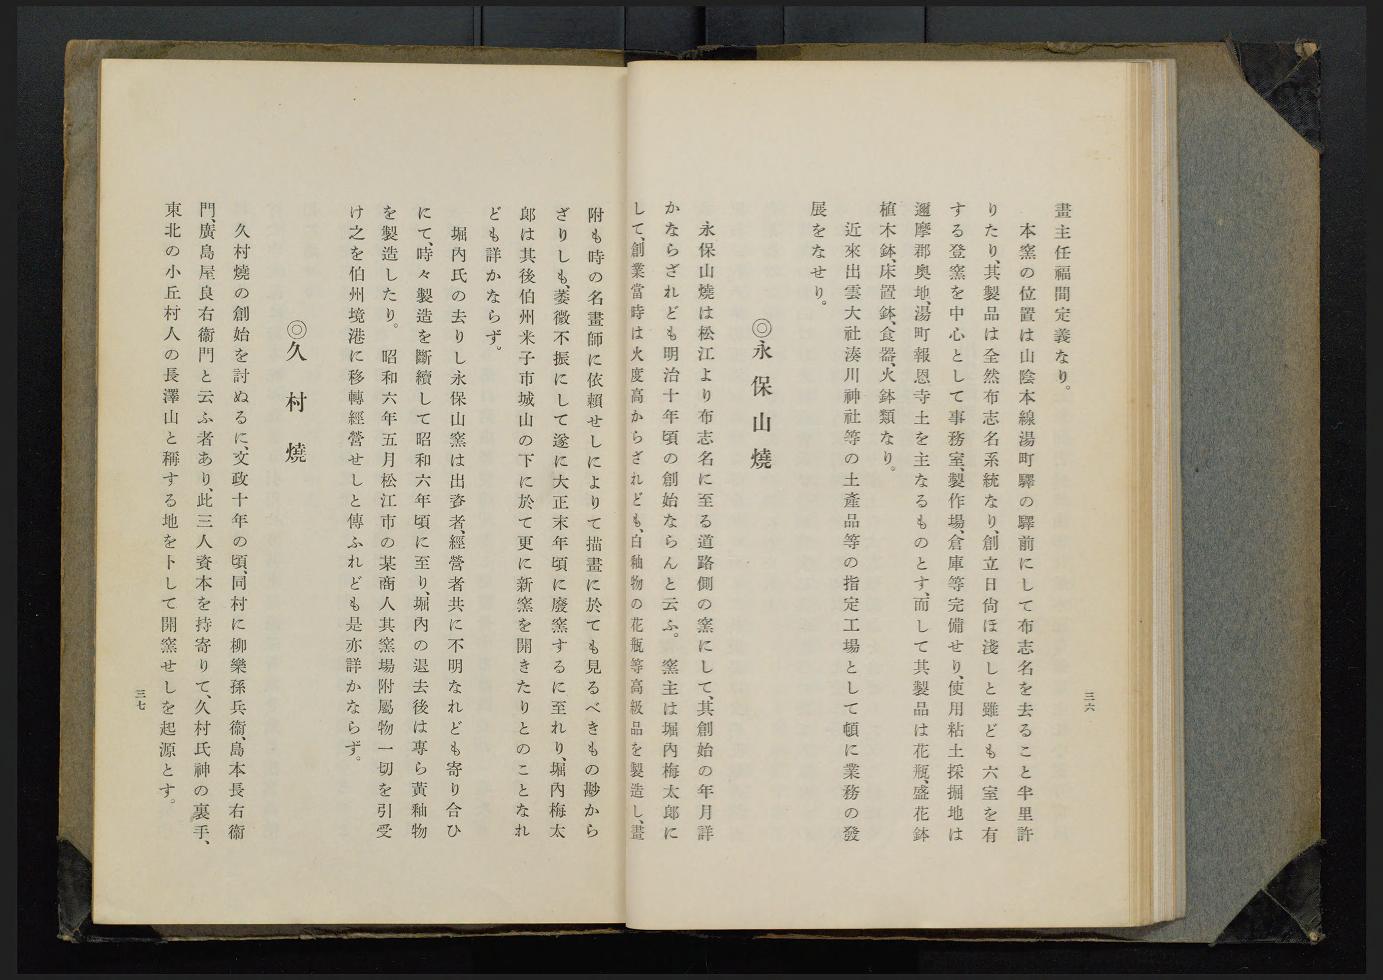 畫主任福間定義なり。
本窯の位置は山陰本線湯町驛の驛前にして布志名を去ること半里許
りたり、其製品は全然布志名系統なり、創立日尙ほ淺しと雖ども六室を有
する登窯を中心として事務室、製作場、倉庫等完備せり、使用粘土採掘地は
邇摩郡奧地、湯町報恩寺土を主なるものとす、而して其製品は花瓶、盛花鉢
植木鉢、床置鉢、食器、火鉢類なり。
近來出雲大社湊川神社等の土產品等の指定工場として頓に業務の發
展をなせり。
◎永保山燒
永保山燒は松江より布志名に至る道路側の窯にして、其創始の年月詳
かならざれども明治十年頃の創始ならんと云ふ。窯主は堀內梅太郎に
して、創業當時は火度高からざれども、白釉物の花瓶等高級品を製造し、畫
三六
附も時の名畫師に依賴せしによりて描畫に於ても見るべきもの尠から
ざりしも、萎微不振にして遂に大正末年頃に廢窯するに至れり、堀內梅太
郎は其後伯州米子市城山の下に於て更に新窯を開きたりとのことなれ
ども詳かならず。
堀內氏の去りし永保山窯は出資者、經營者共に不明なれども寄り合ひ
にて、時々製造を斷續して昭和六年頃に至り、堀內の退去後は專ら黃釉物
を製造したり。昭和六年五月松江市の某商人其窯場附屬物一切を引受
け之を伯州境港に移轉經營せしと傳ふれども是亦詳かならず。
◎久村燒
久村燒の創始を討ぬるに、文政十年の頃、同村に柳樂孫兵衞、島本長右衞
門、廣島屋良右衞門と云ふ者あり、此三人資本を持寄りて、久村氏神の裏手、
東北の小丘村人の長澤山と稱する地を卜して開窯せしを起源とす。
三七